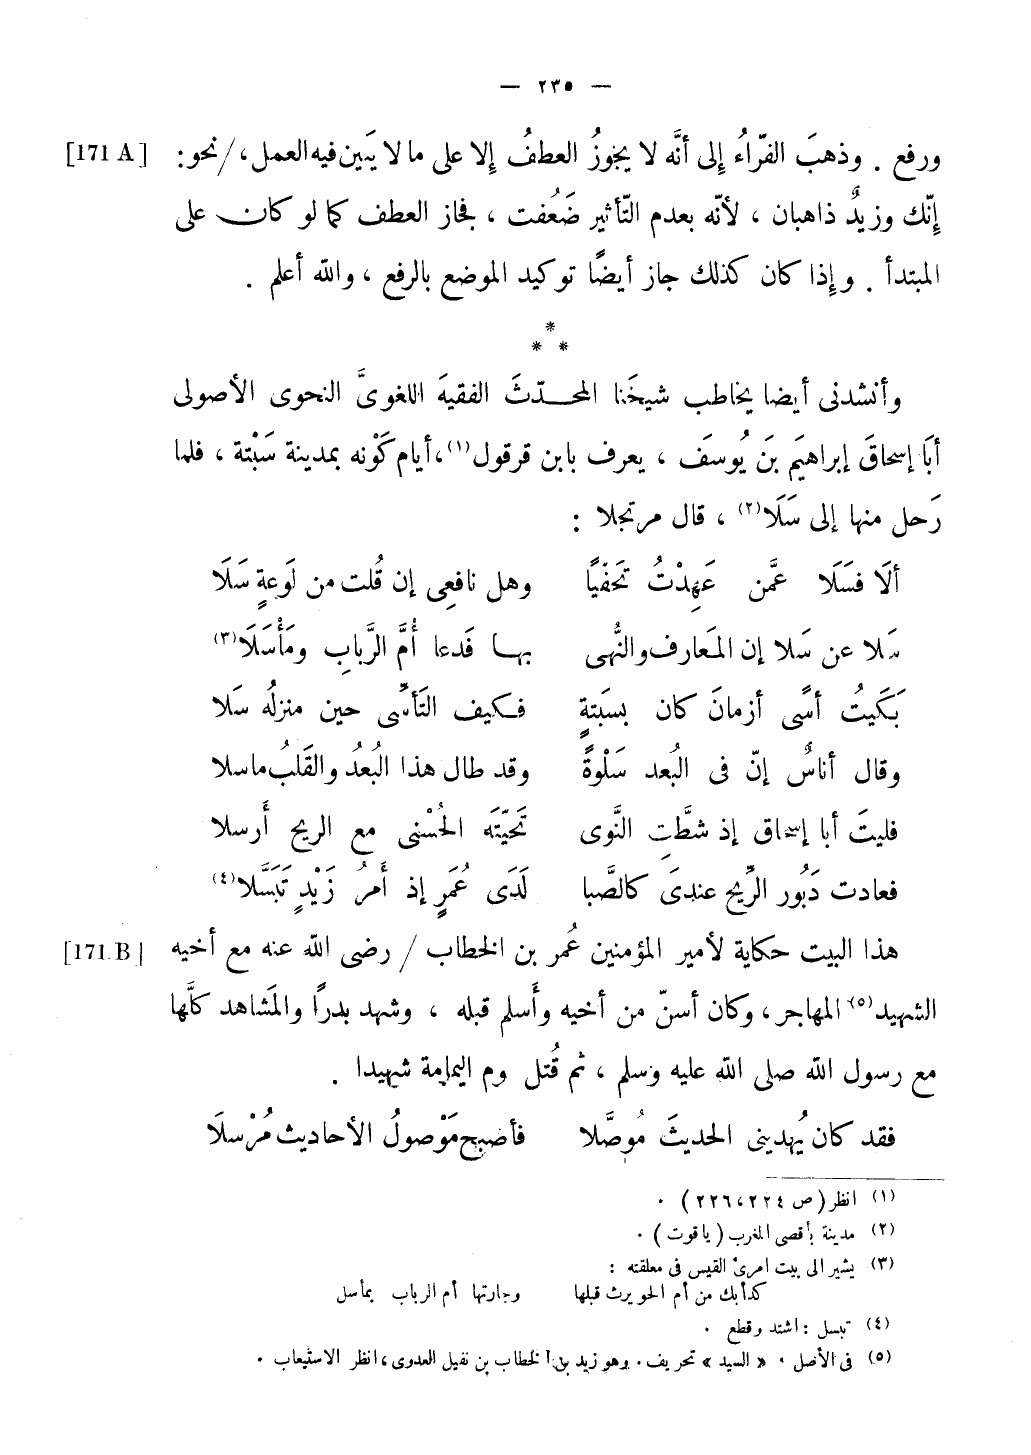 — ٢٣٥ —
ورفع . وذهبَ الفرّاءُ إلى أنَّه لا يجوزُ العطفُ إلا على ما لا يَبين فيه العمل، / نحو: [171 A]
إنّك وزيدٌ ذاهبان ، لأنّه بعدم التّأثير ضَعُفت ، فجاز العطف كما لو كان على
المبتدأ . وإذا كان كذلك جاز أيضًا توكيد الموضع بالرفع ، والله أعلم .
*
* *
وأنشدنى أيضا يخاطب شيخَنا المحدّثَ الفقيهَ اللغوىَّ النحوى الأصولى
أبَا إسحاقَ إبراهيَم بنَ يُوسَف ، يعرف بابن قرقول(١)، أيام كَوْنه بمدينة سَبْتة ، فلما
رَحل منها إلى سَلَا(٢) ، قال مرتجلا :
ألَا فسَلَا عمَّن عَهِدْتُ تَحَفيًّا وهل نافعِى إن قُلت من لَوعةٍ سَلَا
سَلا عن سَلا إن المَعارف والنُّهى بها قَدعا أُمَّ الرَّبابِ ومَأْسَلَا(٣)
بَكَيتُ أسًى أزمانَ كان بسَبَتةٍ فكيف التَأسِّى حين منزلُه سَلا
وقال أناسٌ إنّ فى البُعد سَلْوةً وقد طال هذا البُعدُ والقَلبُ ماسلا
فليتَ أبا إسحاق إذ شطَّتِ النَّوى تَحيّتَه الحُسْنى مع الريح أَرسلا
فعادت دَبُور الرِّيح عندىَ كالصَّبا لَدَى عُمَرٍ إذ أَمرُ زَيْدٍ تَبَسَّلا(٤)
هذا البيت حكاية لأمير المؤمنين عُمر بن الخطاب / رضى الله عنه مع أخيه [171 B]
الشهيد(٥) المهاجر، وكان أسنّ من أخيه وأَسلم قبله ، وشهد بدرًا والمَشاهد كلَّها
مع رسول الله صلى الله عليه وسلم ، ثم قُتل وم اليمامة شهيدا .
فقد كان يُهدينى الحديثَ مُوصَّلا فأصبح مَوْصولُ الأحاديث مُرْسلَا
(١) انظر (ص ٢٢٤، ٢٢٦) .
(٢) مدينة بأقصى المغرب (ياقوت) .
(٣) يشير الى بيت امرئ القيس فى معلقته :
كدأبك من أم الحويرث قبلها وجارتها أم الرباب بمأسل
(٤) تبسل : اشتد وقطع .
(٥) فى الأصل . « السيد » تحريف . وهو زيد بن الخطاب بن نفيل العدوى، انظر الاستيعاب .